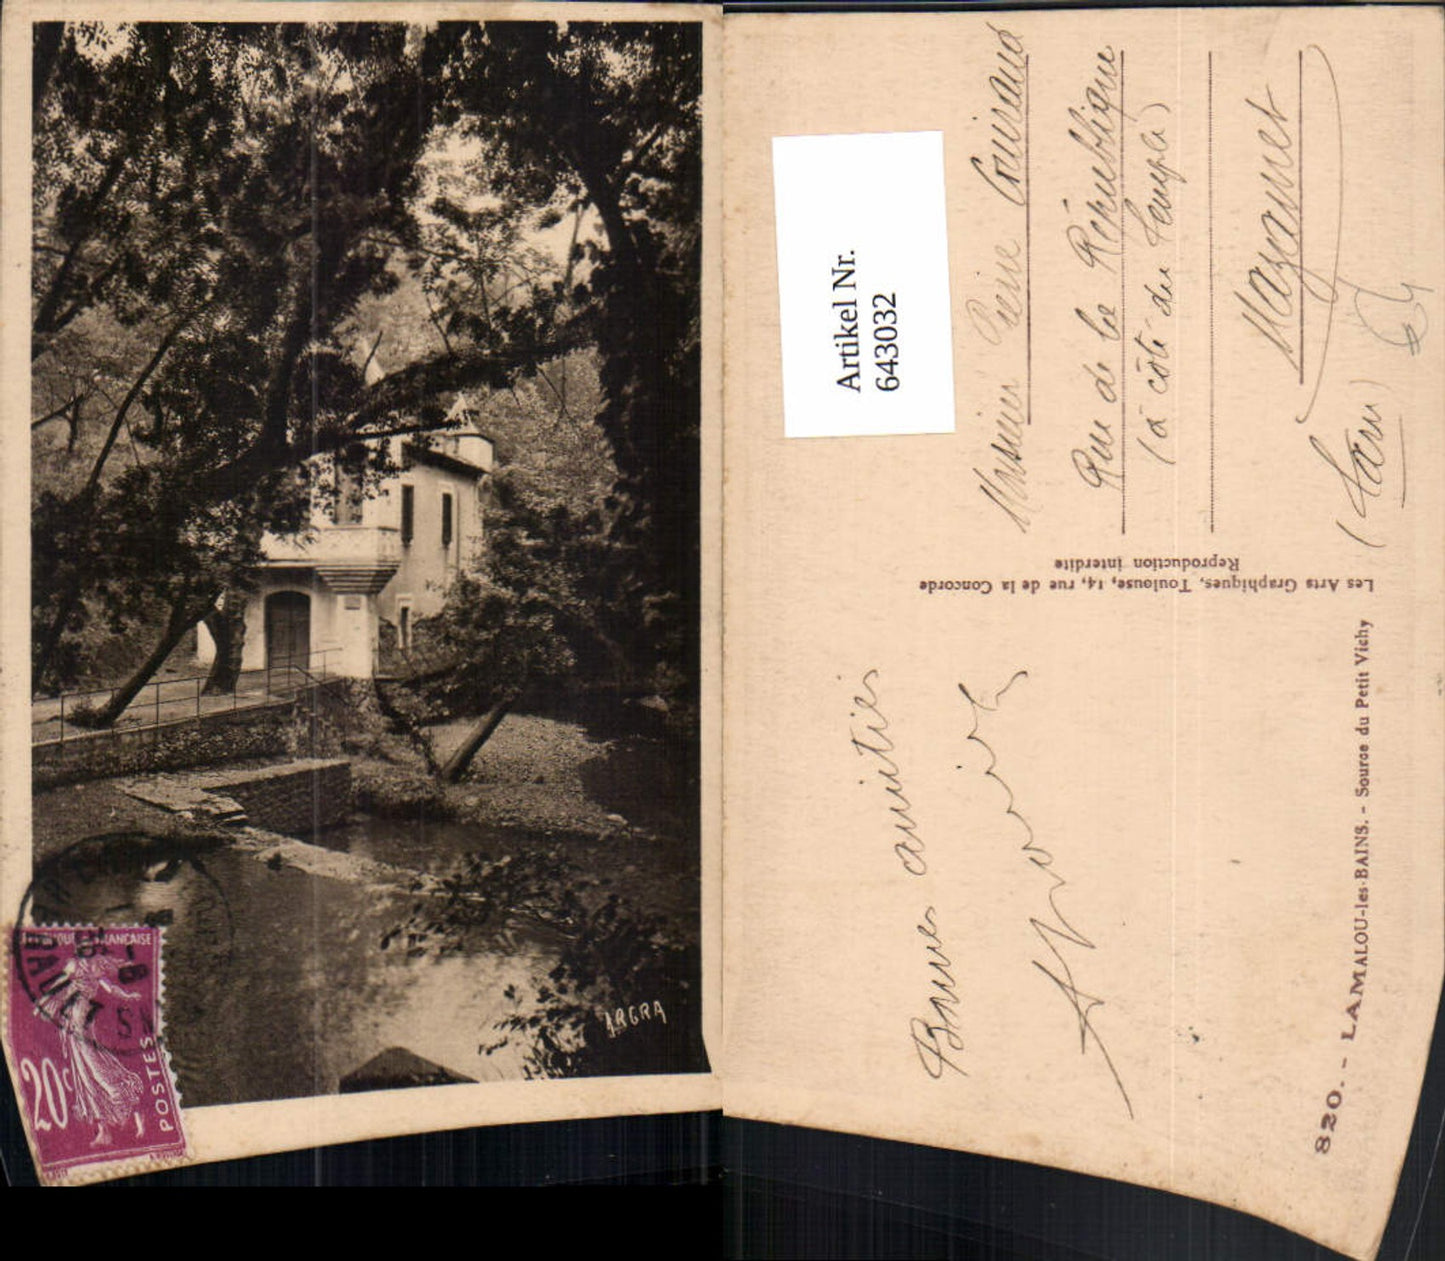 ARGRA
RÉPUBLIQUE FRANÇAISE
20c
POSTES
HÉRAULT
Artikel Nr.
643032
Monsieur Pierre Couiraud
Rue de la République
(à côté du temple)
Mazamet
(Tarn)
Les Arts Graphiques, Toulouse, 14, rue de la Concorde
Reproduction interdite
Bonnes amitiés
820. - LAMALOU-les-BAINS. - Source du Petit Vichy